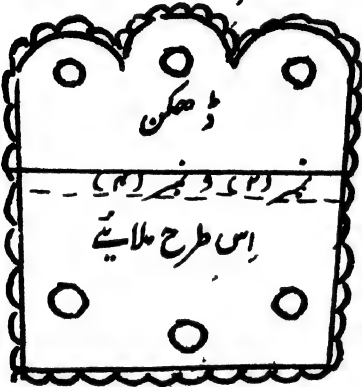 ڈھکن
نمبر (۲) و نمبر (۳)
اِس طرح ملائیے